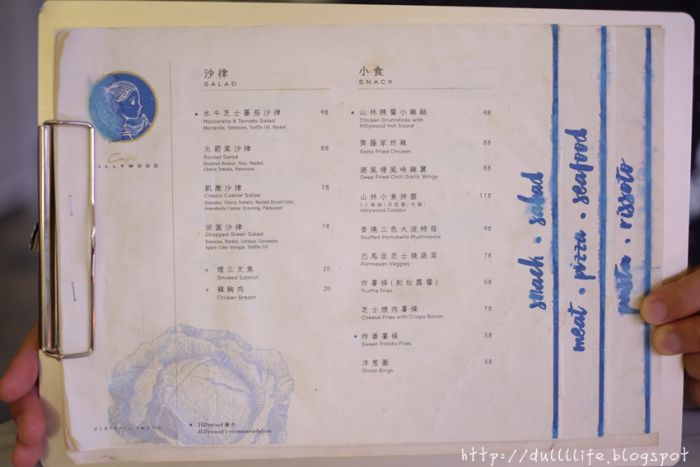 Café
HILLYWOOD
沙律
SALAD
水牛芝士蕃茄沙律 98
Mozzarella & Tomato Salad
Mozzarella, Tomatoes, Truffle Oil, Rocket
火箭菜沙律 88
Rocket Salad
Roasted Walnut, Pear, Rocket,
Cherry Tomato, Parmesan
凱撒沙律 78
Classic Caesar Salad
Romaine, Cherry Tomato, Roasted Bread Cube,
Homemade Caesar Dressing, Parmesan
田園沙律 78
Chopped Green Salad
Romaine, Rocket, Lettuce, Cucumber,
Apple Cider Vinegar, Truffle Oil
+ 煙三文魚 20
Smoked Salmon
+ 雞胸肉 20
Chicken Breast
小食
SNACK
山林辣醬小雞髀 98
Chicken Drumsticks with
Hillywood Hot Sauce
齊藤家炸雞 88
Saito Fried Chicken
避風塘風味雞翼 88
Deep Fried Chilli Garlic Wings
山林小食拼盤 118
Hillywood Combo
香燒三色大波特菇 98
Stuffed Portobello Mushrooms
巴馬臣芝士燒蔬菜 78
Parmesan Veggies
炸薯條(配松露醬) 58
Truffle Fries
芝士煙肉薯條 78
Cheese Fries with Crispy Bacon
炸番薯條 58
Sweet Potato Fries
洋葱圈 58
Onion Rings
Hillywood 推介
Hillywood's recommendation
snack • salad
meat • pizza • seafood
pasta • rissoto
http://dullllife.blogspot